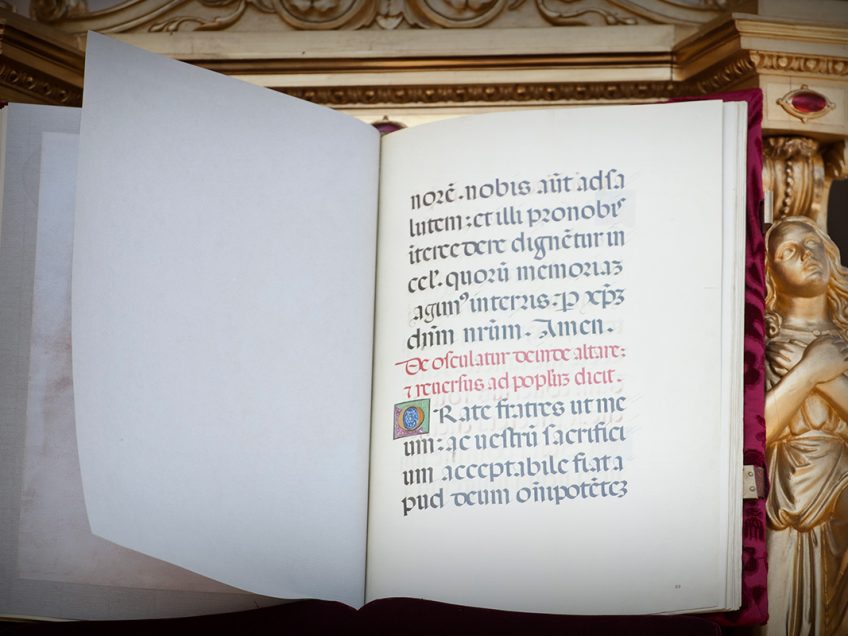 norē. nobis aūt ad sa
lutem: et illi pro nobis
itercedere dignētur in
cel'. quorū memoriaȝ
agimꝰ in terris. P xp̄ȝ
dn̄m nr̄um. Amen.
De osculatur deinde altare:
⁊ reuersus ad popl'uȝ dicit.
ORate fratres ut me
um: ac uestrū sacrifici
um acceptabile fiat a
pud deum om̄ipotētēȝ